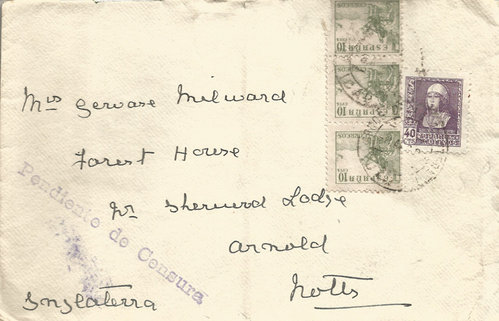 Mrs Gervase Milward
Forest House
nr Sherwood Lodge
Arnold
Notts
Inglaterra
Pendiente de Censura
10
ESPAÑA
CTS
10
ESPAÑA
CTS
10
ESPAÑA
CTS
40